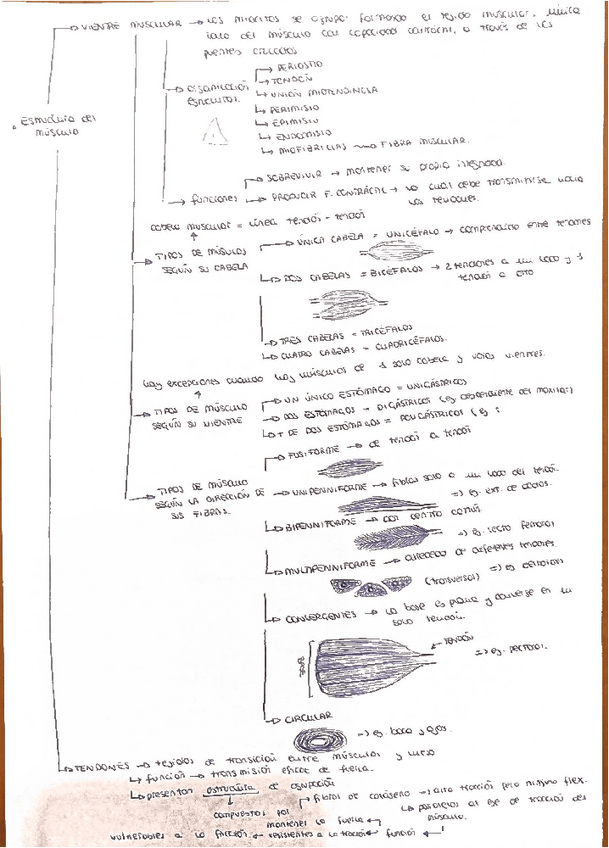 VIENTRE MUSCULAR → LOS MIOCITOS se agrupan formando el tejido muscular, único
lado del músculo con capacidad contráctil, a través de los
puentes cruzados
• Estructura del
músculo
ORGANIZACIÓN
ESTRUCTURAL
PERIOSTIO
TENDÓN
UNIÓN MIOTENDINOSA
PERIMISIO
EPIMISIO
ENDOMISIO
MIOFIBRILLAS → FIBRA MUSCULAR.
funciones
SOBREVIVIR → mantener su propia integridad.
PRODUCIR F. CONTRÁCTIL → la cual debe transmitirse hacia
los tendones.
cabeza muscular = línea tendón - tendón
TIPOS DE MÚSCULOS
SEGÚN SU CABEZA
ÚNICA CABEZA = UNICÉFALO → comprendido entre tendones
DOS CABEZAS = BICÉFALOS → 2 tendones a un lado y 1
tendón a otro
TRES CABEZAS = TRICÉFALOS
CUATRO CABEZAS = CUADRICÉFALOS.
hay excepciones cuando hay músculos de 1 sola cabeza y varios vientres.
TIPOS DE MÚSCULO
SEGÚN SU VIENTRE
UN ÚNICO ESTÓMAGO = UNIGÁSTRICOS
DOS ESTÓMAGOS = DIGÁSTRICOS (ej:
+ DE DOS ESTÓMAGOS = POLIGÁSTRICOS (ej:
TIPOS DE MÚSCULO
SEGÚN LA DIRECCIÓN DE
SUS FIBRAS.
FUSIFORME → de tendón a tendón
UNIPENNIFORME → fibras solo a un lado del tendón.
=> ej. ext. de dedos.
BIPENNIFORME → con centro común
=> ej. recto femoral
MULTIPENNIFORME → alrededor de diferentes tendones.
(transversal) => ej deltoides
CONVERGENTES → la base es plana y converge en un
solo tendón.
BASE
TENDÓN
=> ej. pectoral.
CIRCULAR
=> ej. boca y ojos.
TENDONES → tejidos de transición entre músculos y hueso
función → transmisión eficaz de fuerza.
presentan estructura de
compuestos por
fibras de colágeno → alta tracción pero mínimo flex.
paralelas al eje de tracción del
músculo.
mantener la fuerza
vulnerables a la fricción ← resistentes a la tracción ← función